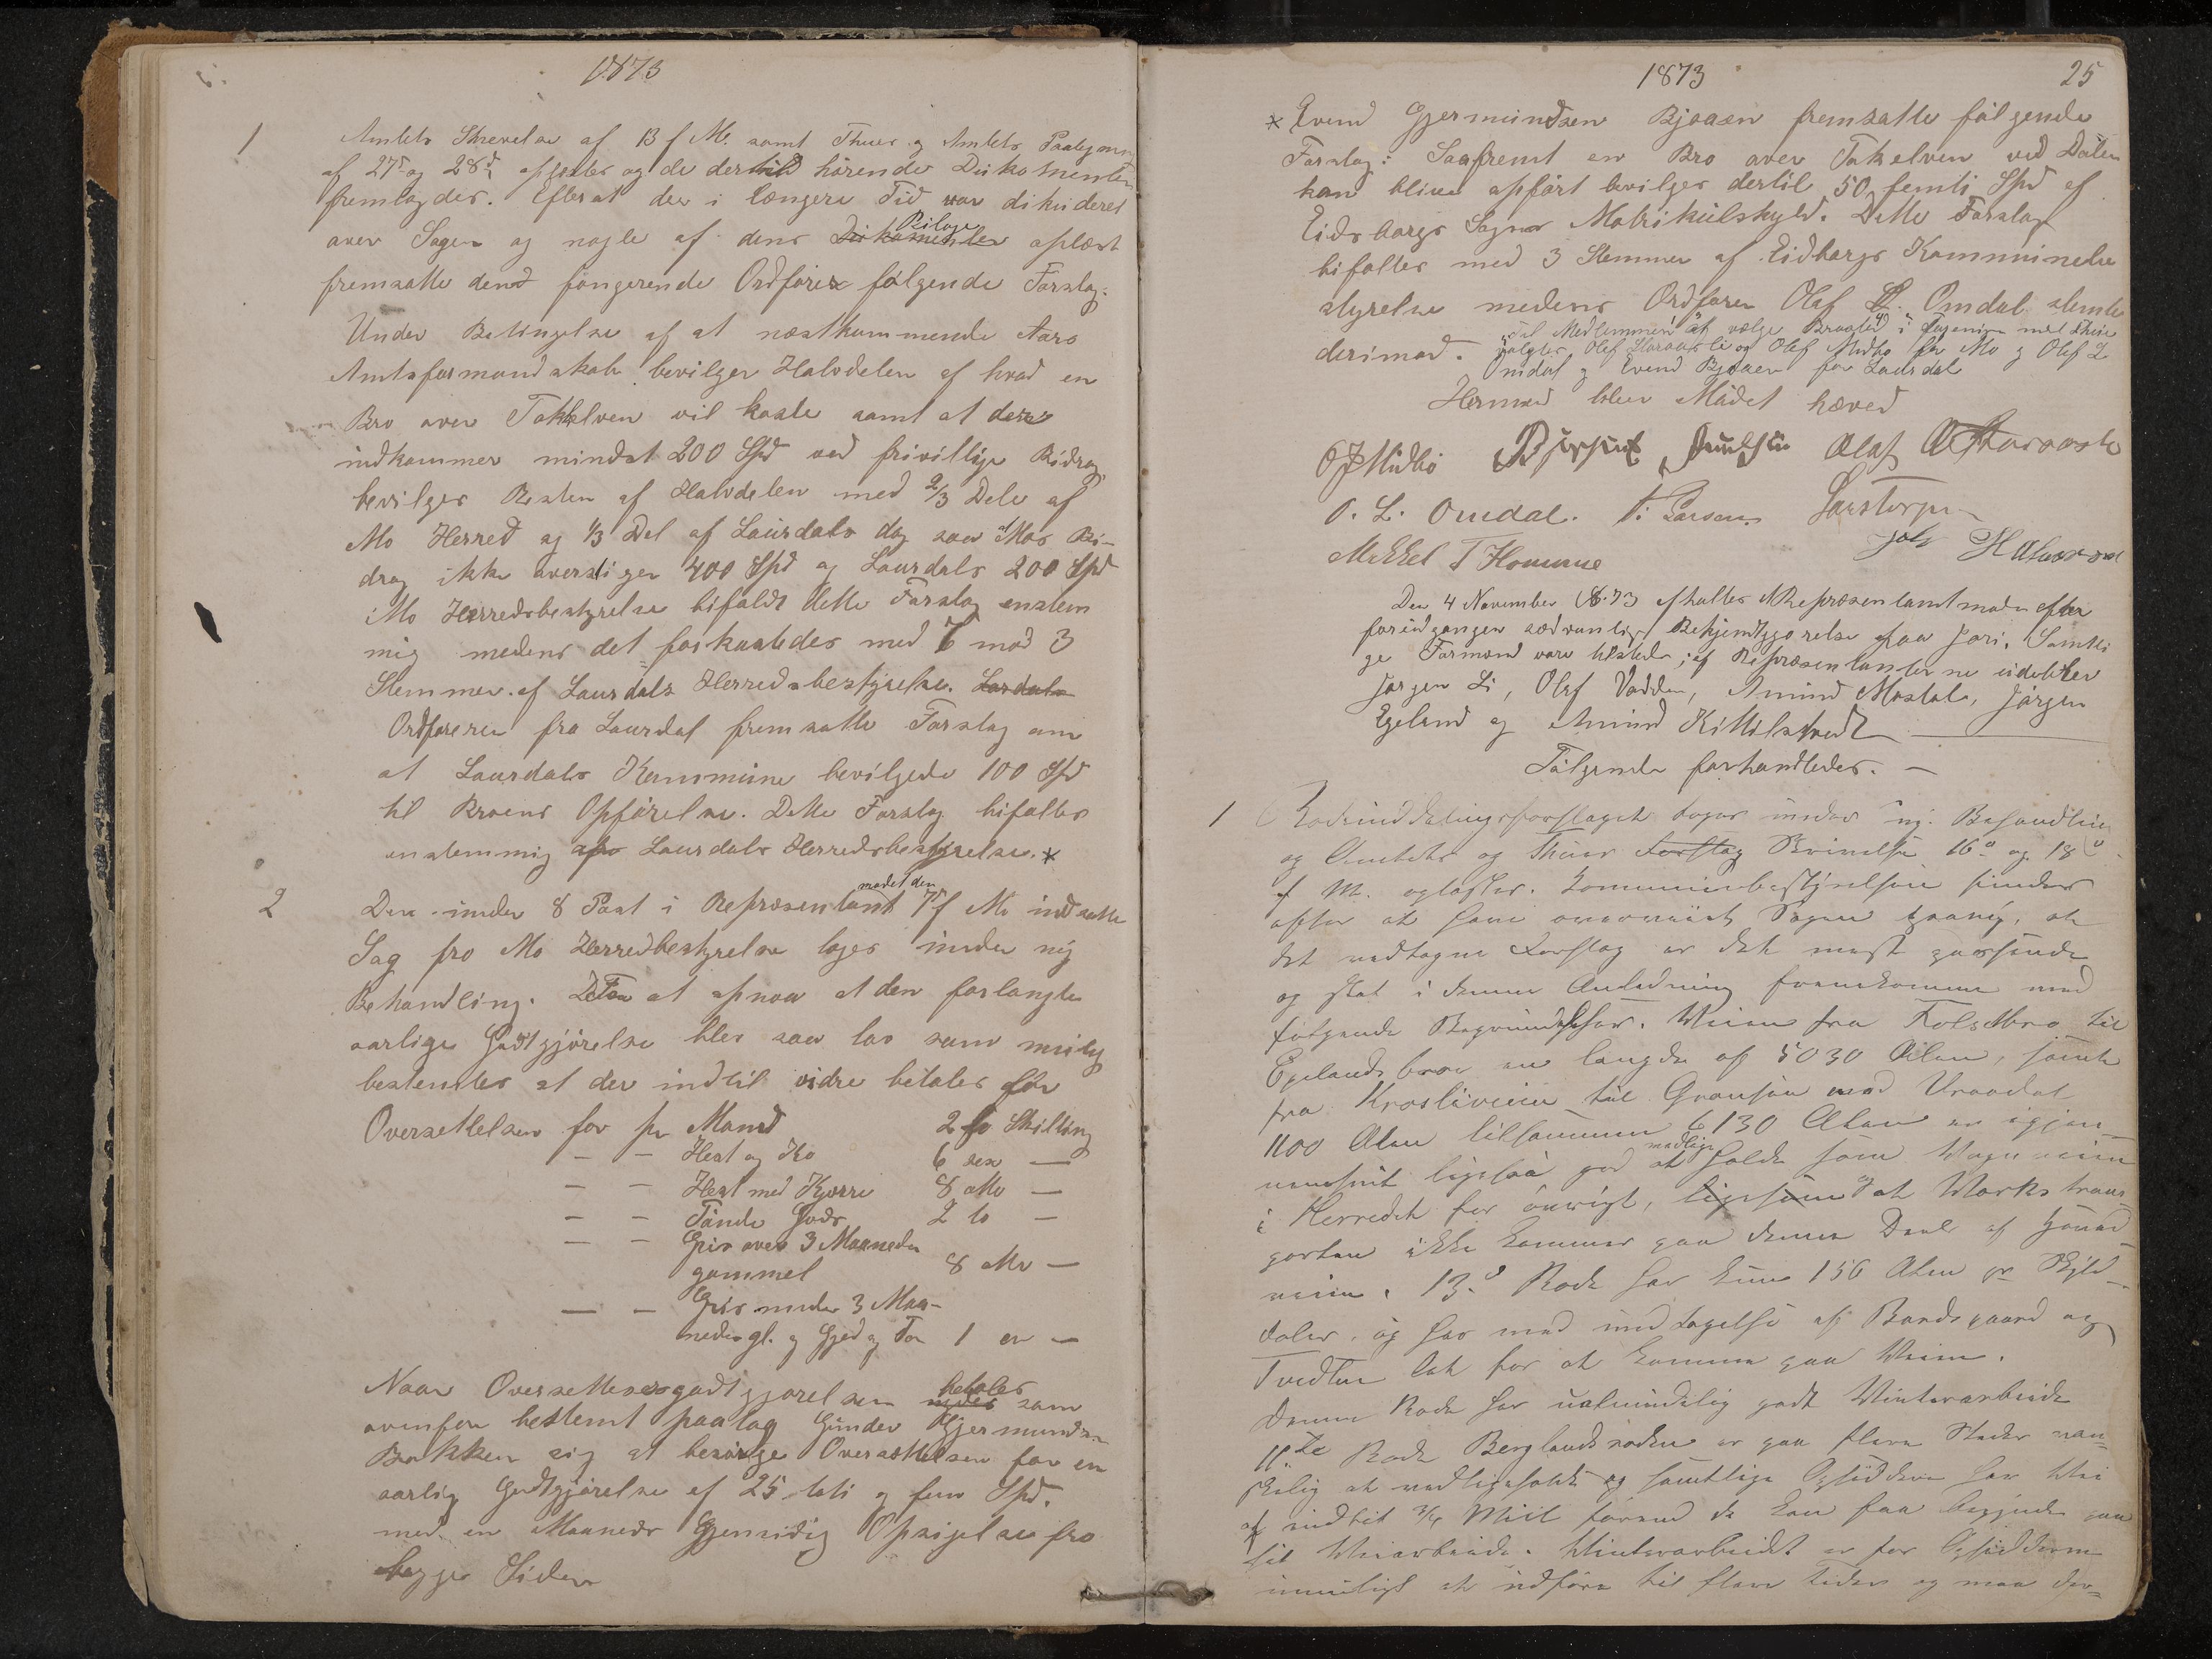 1873
1 Amtets Skrevelse af 13 f M. samt Thues og Amtets Paategning
af 27de og 28de opløstes og de dertil hørende Dukomenter
fremlagdes. Efterat der i længere Tid var dikuderet
over Sagen og nogle af dens Dukomenter Bilage oplæst
fremsatte den fongerende Ordfører følgende Forslag:
Under Betingelse af at næstkommende Aars
Amtsformandskab bevilger Halvdelen af hvad en
Bro over Tokkelven vil koste samt at der
indkommer mindst 200 Spd ved frivillige Bidrag
bevilges Resten af Halvdelen med 2/3 Dele af
Mo Herred og 1/3 Del af Laurdals dog saa Mos Bi-
drag ikke overstiger 400 Spd og Laurdals 200 Spd
i Mo Herredsbestyrelse bifaldt dette Forslag enstem
mig medens det forkastedes med 7 mod 3
Stemmer af Laurdals Herredsbestyrelse. Lardals
Ordføreren fra Laurdal fremsatte Forslag om
at Laurdals Kommune bevilgede 100 Spd
til Broens Opførelse. Dette Forslag bifaltes
enstemmig af Laurdals Herredsbestyrelse. *
2 Den under 8 Post i Repræsentant mødet den 7de f M. indsatte
Sag fra Mo Herredbestyrelse toges under ny
Behandling. For at opnaa at den forlangte
aarlige Godtgjørelse blev saa lav som mulig
bestemtes at der indtil vidre betales for
Oversettelsen for pr Mand 2 to Skilling
— — Hest og Ko 6 sex —
— — Hest med Kjærre 8 otte —
— — Tønde Gods 2 to —
— — Gris over 3 Maaneder
gammel 8 otte —
— — Gris under 3 Maa-
neder gl. og Gjed og Faar 1 en —
Naar Oversettelsesgodtgjørelsen betales som
ovenfor bestemt paatog Gunder Gjermundsen
Bakken sig at besørge Oversættelsen for en
aarlig Godtgjørelse af 25 toti og fem Spd.
med en Maaneds Gjensidig Opsigelse fra
begge Sider
1873 25
* Evend Gjermundsen Bjaaen fremsatte følgende
Forslag: Saafremt en Bro over Tokelven ved Dalen
kan blive opført bevilges dertil 50 femti Spd af
Eidsborgs Sogns Matrikulskyld. Dette Forslag
bifaltes med 3 Stemmer af Eidborgs Kommunebe
styrelse medens Ordføren Olaf L. Omdal stemte
derimod. Til Medlemmer at vælge Brosted i Forening med Thue
valgtes Olaf Storaasli og Olaf Midbø for Mo og Olaf L
Omdal og Evend Bjaaen for Laurdal
Hermed blev Mødet hæved
O J Midbø Olaf A Storaasli
O. L. Omdal. T. Larsen
Mikkel T Homme H Halvorsen
Den 4 November 1873 afholtes Repræsentantmøde efter
foriudgangen sædvanlig Bekjendtgjørelse paa Jori. Samtli
ge Formænd vare tilstede; af Repræsentanterne udeblev
Jørgen Li, Olaf Vadden, Amund Mostøl, Jørgen
Egeland og Amund Kittilstvedt
Følgende forhandledes. —
1 Rodeinddelingsforslaget toges under ny Behandling
og Amtets og Thues Forslag Skrivelse 16de og 18de
f M. oplæstes. Kommunebestyrelsen finder
efter at have overveiet Sagen paany, at
det vedtagne Forslag er det mest passende
og skal i denne Anledning fremkomme med
følgende Begrundelser. Veien fra Folsæbro til
Egelands bro en længde af 5030 Alen, samt
fra Krosliveien til Grændsen mod Vraadal
1100 Alen tilsammen 6130 Alen er igjen-
nemsnit ligesaa god at vedlige holde som Veien
i Herredet for øvrigt, ligesom at Værks trans
porten ikke kommer paa denne Deel af Hoved
veien. 13de Rode har kun 156 Alen pr Skyld-
daler, og har med undtagelse af Bandsgaard og
Tvedten let for at komme paa Veien.
Denne Rode har ualmindelig godt Vinterarbeide
11te Rode Berglandsroden er paa flere Steder van-
skelig at vedligeholde og samtlige Opsiddere har Vei
af indtil 3/4 Miil førend de kan faa begynde paa
sit Veiarbeide. Vinterarbeidet er for Opsidderne
umuligt at udføre til flere tider og maa der-